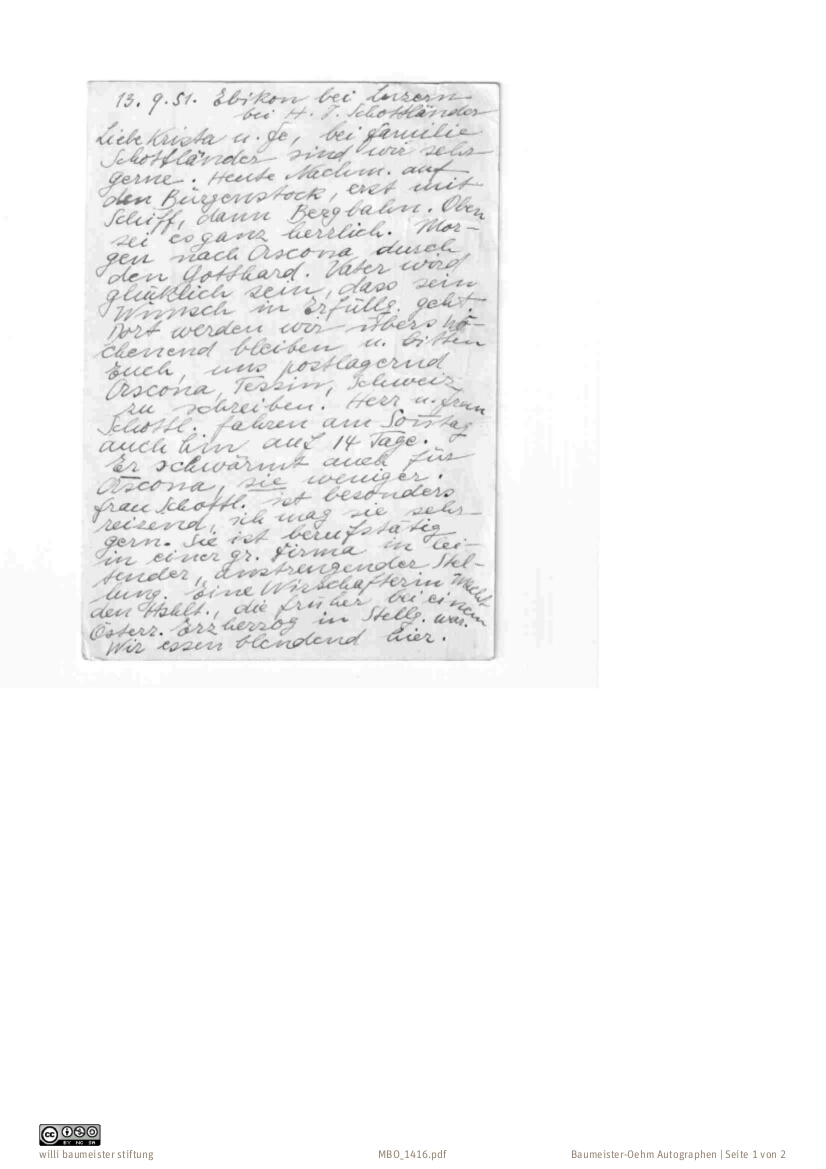 13. 9. 51. Ebikon bei Luzern
bei H. J. Schottländer
Liebe Krista u. Fe, bei Familie
Schottländer sind wir sehr
gerne. Heute Nachm. auf
den Bürgenstock, erst mit
Schiff, dann Bergbahn. Oben
sei es ganz herrlich. Mor-
gen nach Ascona durch
den Gotthard. Vater wird
glücklich sein, dass sein
Wunsch in Erfüllg. geht.
Dort werden wir übers Wo-
chenend bleiben u. bitten
Euch, uns postlagernd
Ascona, Tessin, Schweiz
zu schreiben. Herr u. Frau
Schottl. fahren am Sonntag
auch hin auf 14 Tage.
Er schwärmt auch für
Ascona, sie weniger.
Frau Schottl. ist besonders
reizend, ich mag sie sehr
gern. Sie ist berufstätig
in einer gr. Firma in lei-
tender, anstrengender Stel-
lung. Eine Wirschafterin macht
den Hshlt., die früher bei einem
Österr. Erzherzog in Stellg. war.
Wir essen blendend hier.
willi baumeister stiftung
MBO_1416.pdf
Baumeister-Oehm Autographen | Seite 1 von 2